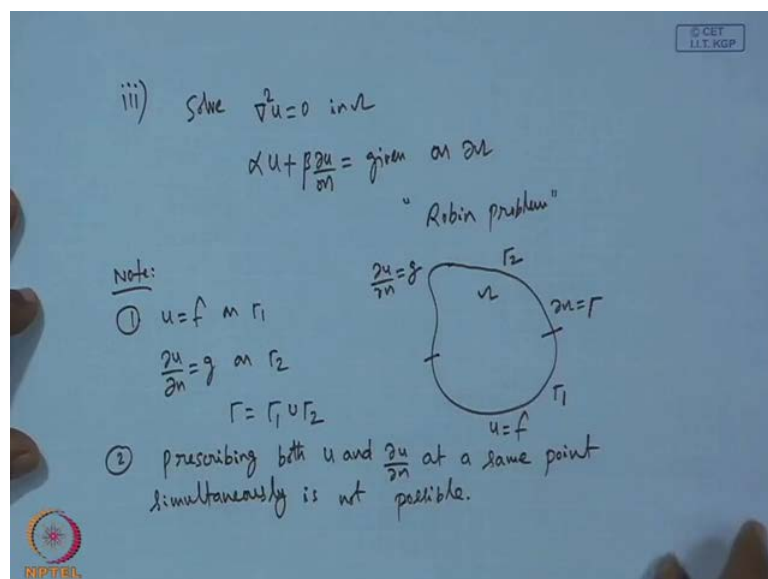 © CET
I.I.T. KGP
iii) Solve ∇²u=0 in Ω
αu+β∂u/∂n = given on ∂Ω
"Robin problem"
Note:
① u=f on Γ1
∂u/∂n=g on Γ2
Γ= Γ1 ∪ Γ2
∂u/∂n=g
Γ2
Ω
∂Ω=Γ
Γ1
u=f
② prescribing both u and ∂u/∂n at a same point
simultaneously is not possible.
NPTEL